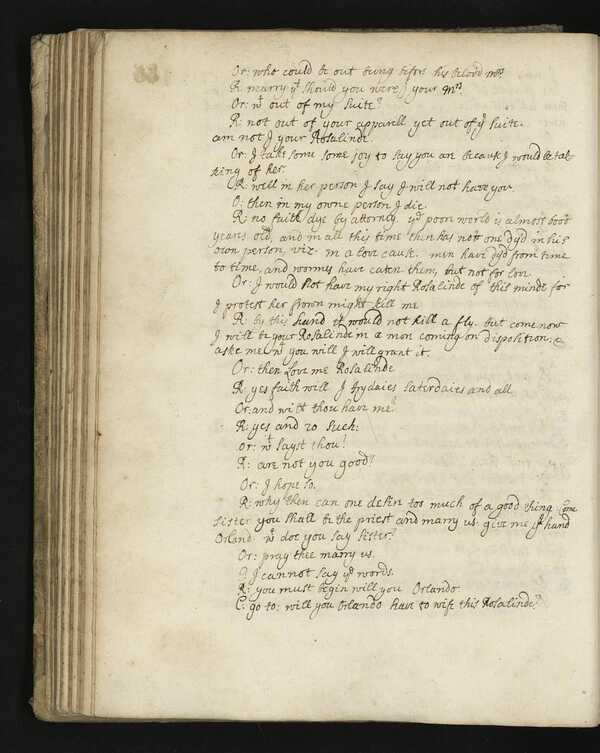 Or: who could be out being before his belov'd Mrs
R marry yt should you were J your Mrs
Or: wt out of my suite?
R: not out of your apparell yet out of yr suite.
am not J your Rosalinde.
Or: J take some some joy to say you are becaus J would be tal
king of her.
R: well in her person J say J will not have you.
O: then in my owne person J die.
R: no faith dye by attorney. ye poor world is almost 6000
years old, and in all this time ther has not one dy'd in his
own person, viz: in a love cause. men have dy'd from time
to time, and wormes have eaten them, but not for lov.
Or: J would not have my right Rosalinde of this minde for
J protest her frown might kill me
R: by this hand it would not kill a fly. but come now
J will be your Rosalinde in a mor coming on disposition: &
aske me wt you will J will grant it.
Or: then Love me Rosalinde
R: yes faith will J frydaies saterdaies and all
Or: and wilt thou have me?
R: yes and 20 such:
or: wt sayst thou?
R: are not you good?
Or: J hope so.
R: why then can one desire too much of a good thing Come
sister you shall be the priest and marry us. give me yr hand
Orland: wt doe you say sister?
Or: pray thee marry us.
J cannot say ye words.
R: you must begin will you Orlando
C: go to: will you Orlando have to wife this Rosalinde?